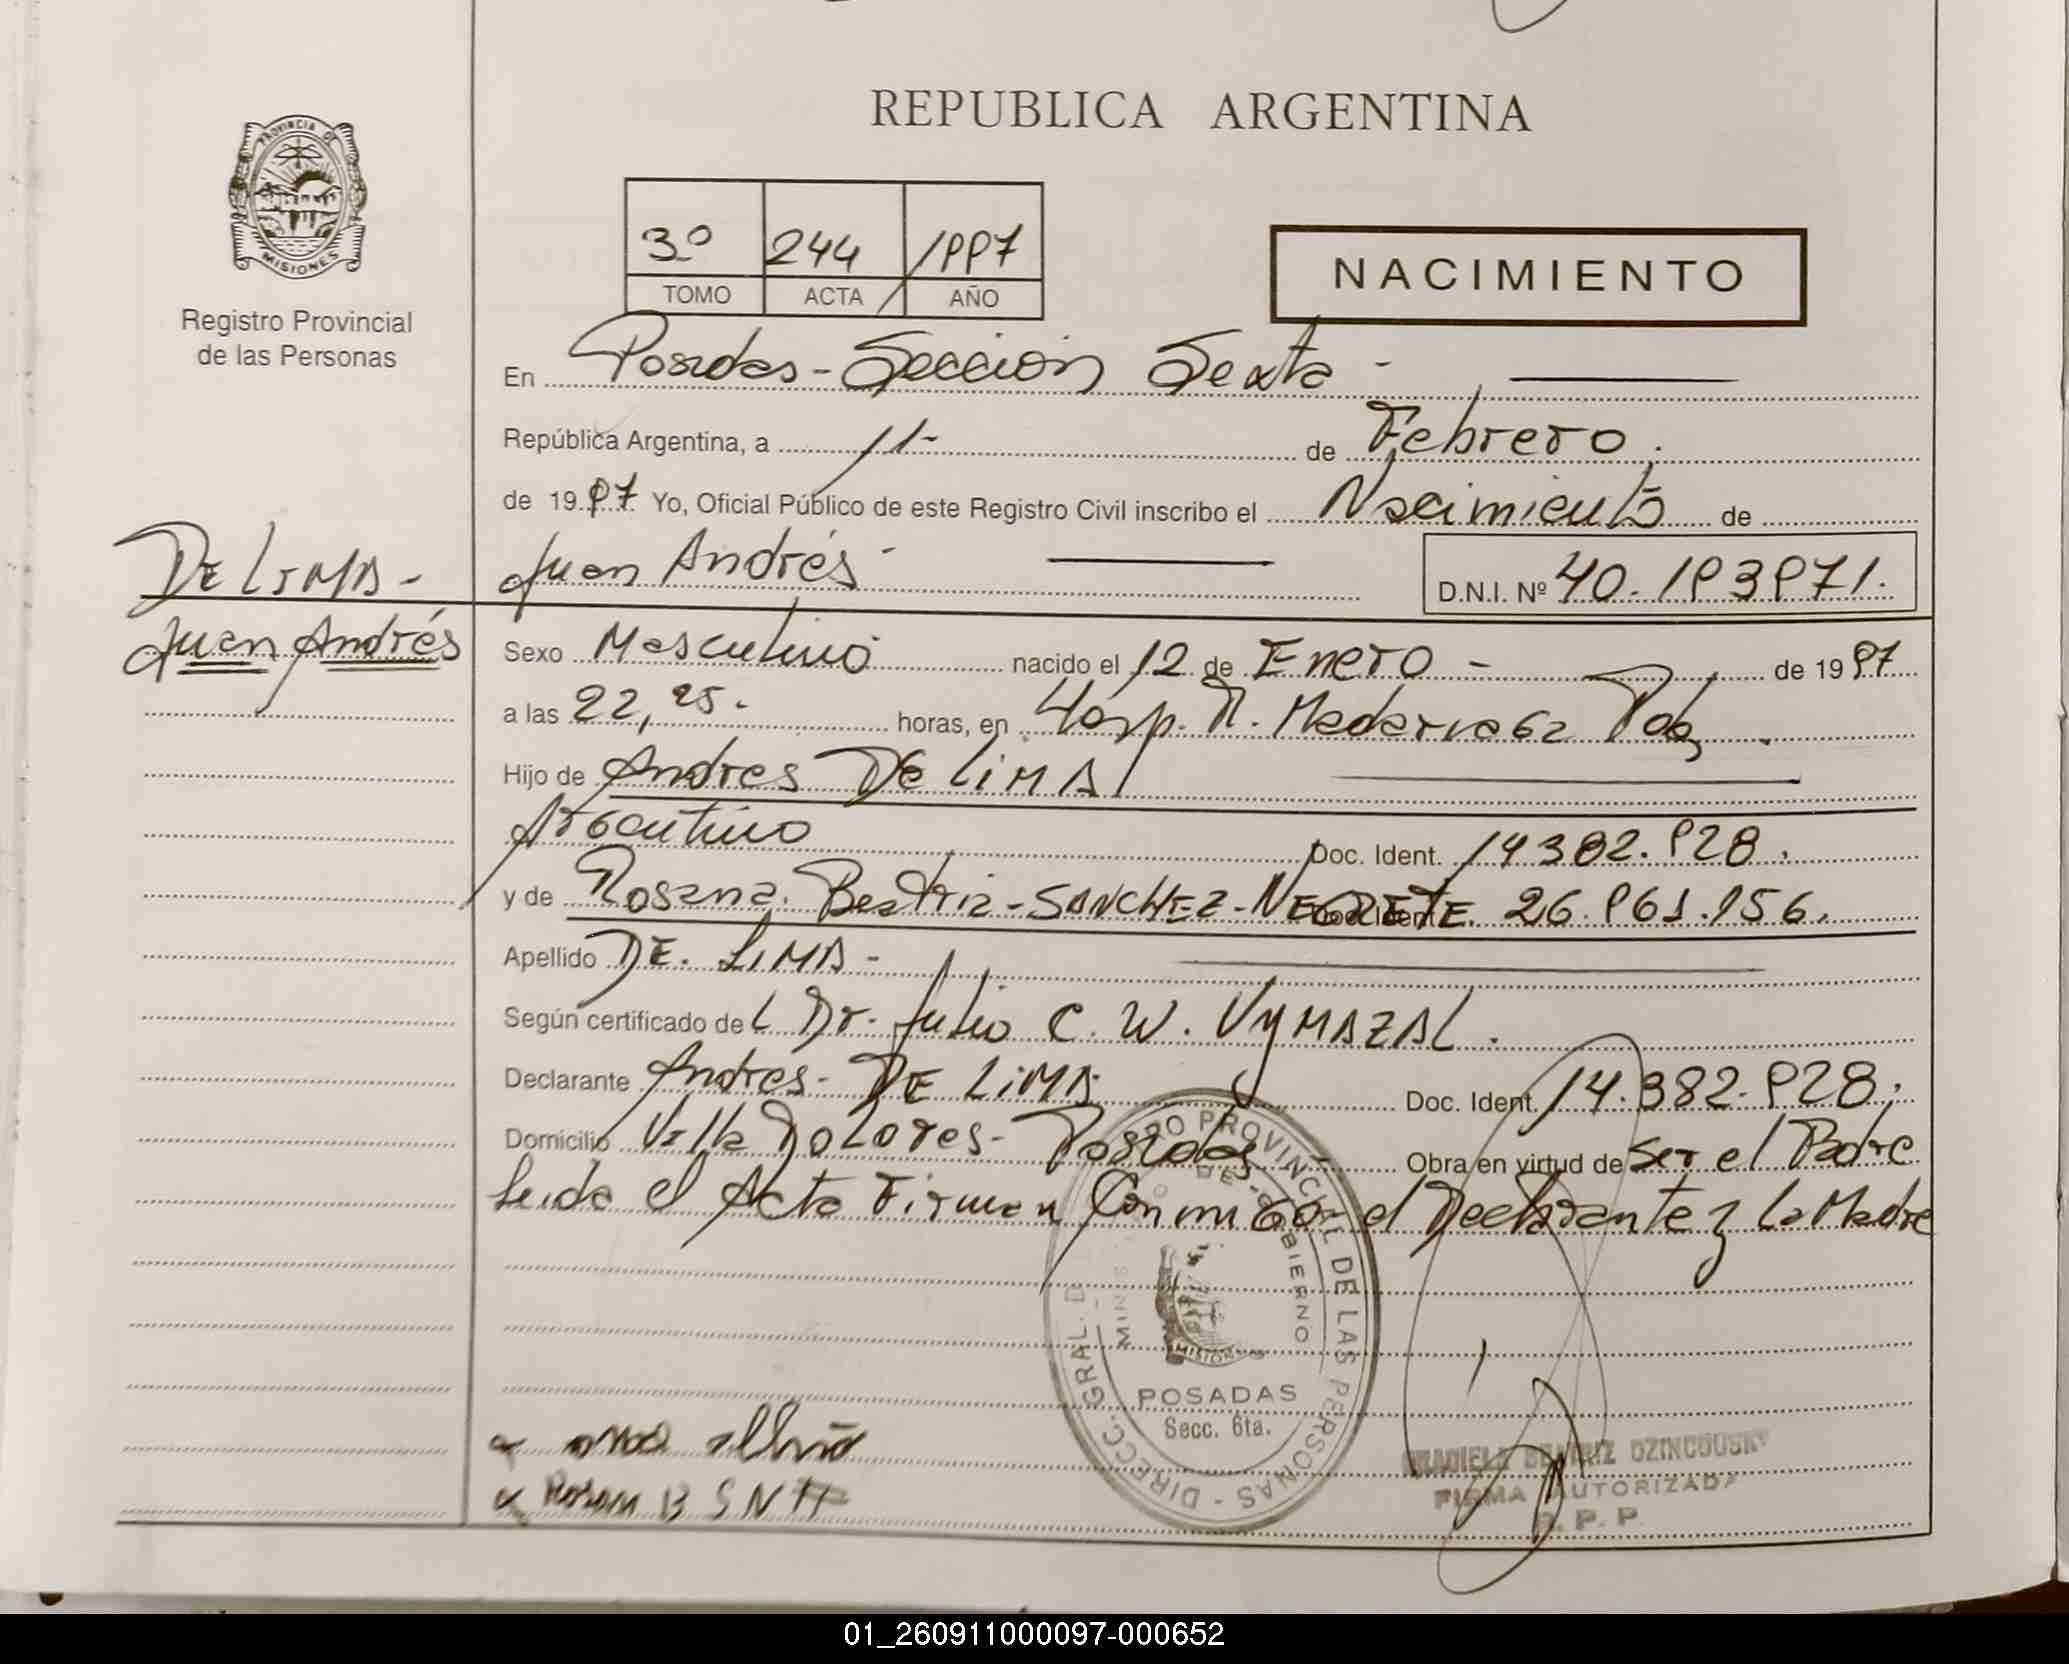 REPUBLICA ARGENTINA
PROVINCIA DE
MISIONES
Registro Provincial
de las Personas
3º 244 1997
TOMO ACTA AÑO
NACIMIENTO
En Posadas - Sección Sexta -
República Argentina, a 11- de Febrero
de 1997 Yo, Oficial Público de este Registro Civil inscribo el Nacimiento de
DE LIMA -
Juan Andrés
Juan Andrés - D.N.I. Nº 40.193971.
Sexo Masculino nacido el 12 de Enero - de 1997
a las 22,25. horas, en Hosp. R. Madariaga Pdas
Hijo de Andres DE LIMA
Argentino Doc. Ident. 14382.928.
y de Rosana Beatriz - SANCHEZ - NEGRETE Doc. Ident. 26.961.156.
Apellido DE. LIMA -
Según certificado del Dr. Julio C. W. VYMAZAL.
Declarante Andres - DE LIMA Doc. Ident. 14.382.928.
Domicilio Villa Dolores - Posadas - Obra en virtud de ser el Padre
Leida el Acta Firman Conmigo el Declarante y La Madre
DIRECC. GRAL. DE REGISTRO PROVINCIAL DE LAS PERSONAS -
MINISTERIO DE GOBIERNO
MISIONES
POSADAS
Secc. 6ta.
GRACIELA BEATRIZ DZINCOUSKY
FIRMA AUTORIZADA
R. P. P.
Rosana B S N
01_260911000097-000652